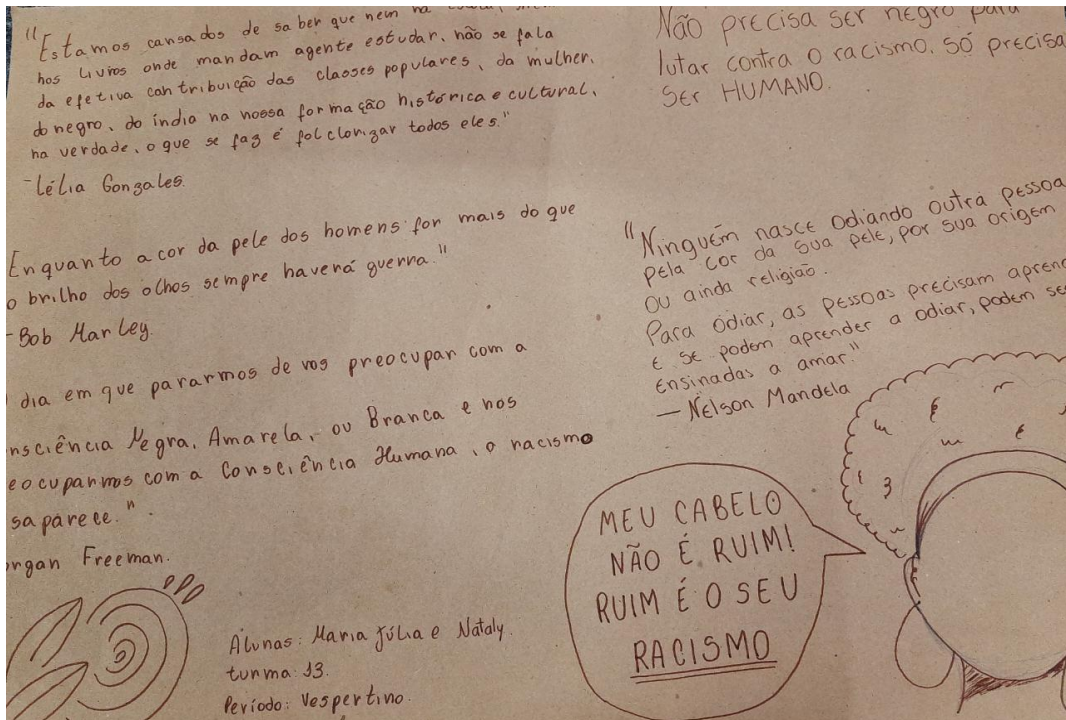 "Estamos cansados de saber que nem na
nos livros onde mandam agente estudar, não se fala
da efetiva contribuição das classes populares, da mulher,
do negro, do índia na nossa formação histórica e cultural,
na verdade, o que se faz é folclorizar todos eles."
-Lélia Gonzales.
Enquanto a cor da pele dos homens for mais do que
o brilho dos olhos sempre haverá guerra."
-Bob Marley.
dia em que pararmos de vos preocupar com a
nsciência Negra, Amarela, ou Branca e nos
eocuparmos com a Consciência Humana, o racismo
saparece."
organ Freeman.
Alunas: Maria Júlia e Nataly.
turma: 13.
Período: Vespertino.
Não precisa ser negro para
lutar contra o racismo. Só precisa
ser HUMANO.
"Ninguém nasce odiando outra pessoa
pela cor da sua pele, por sua origem
ou ainda religião.
Para odiar, as pessoas precisam apren
e se podem aprender a odiar, podem se
ensinadas a amar."
— Nelson Mandela
MEU CABELO
NÃO É RUIM!
RUIM É O SEU
RACISMO